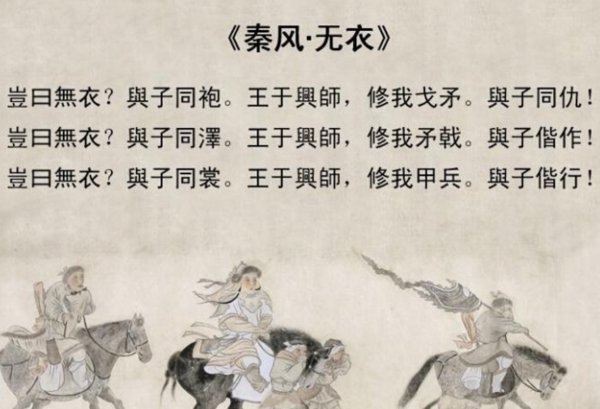 《秦风·无衣》
豈曰無衣？與子同袍。王于興師，修我戈矛。與子同仇！
豈曰無衣？與子同澤。王于興師，修我矛戟。與子偕作！
豈曰無衣？與子同裳。王于興師，修我甲兵。與子偕行！